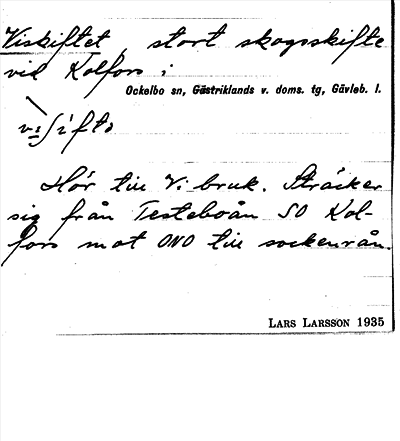 Viskiftet, stort skogsskifte
vid Kolfors i
Ockelbo sn, Gästriklands v. doms. tg, Gävleb. l.
Hör till Vi bruk. Sträcker
sig från Testeboån SO Kol-
fors mot ONO till sockenrån.
LARS LARSSON 1935